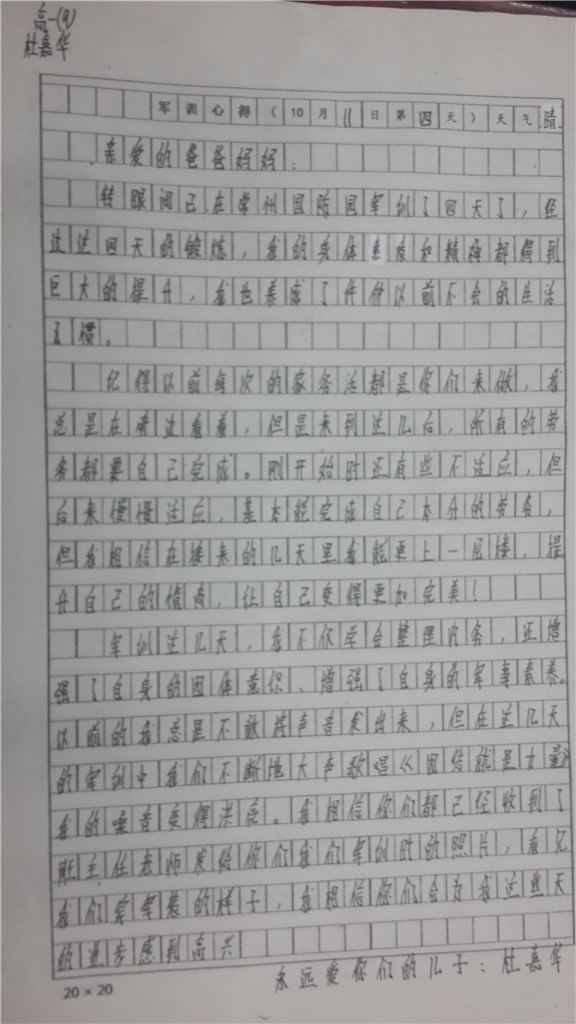 高一(9)
杜嘉华
军训心得(10月11日第四天)天气晴
亲爱的爸爸妈妈:
转眼间已在常州国防园军训了四天了,经
过这四天的锻炼,我的身体素质和精神都得到
巨大的提升,我也养成了许多以前不会的生活
习惯。
记得以前每次的家务活都是你们来做,我
总是在旁边看着,但是来到这儿后,所有的劳
务都要自己完成。刚开始时还有些不适应,但
后来慢慢适应,基本能完成自己本分的劳务,
但我相信在接来的几天里我能更上一层楼,提
升自己的情商,让自己变得更加完美!
军训这几天,我不仅学会整理内务,还增
强了自身的团体意识、增强了自身的军事素养。
以前的我总是不敢将声音发出来,但在这几天
的军训中我们不断地大声歌唱《团结就是力量》
我的嗓音变得洪亮。我相信你们都已经收到了
班主任老师发给你们我们军训时的照片,看见
我们穿军装的样子,我相信你们会为我这些天
的进步感到高兴
永远爱你们的儿子:杜嘉华
20×20